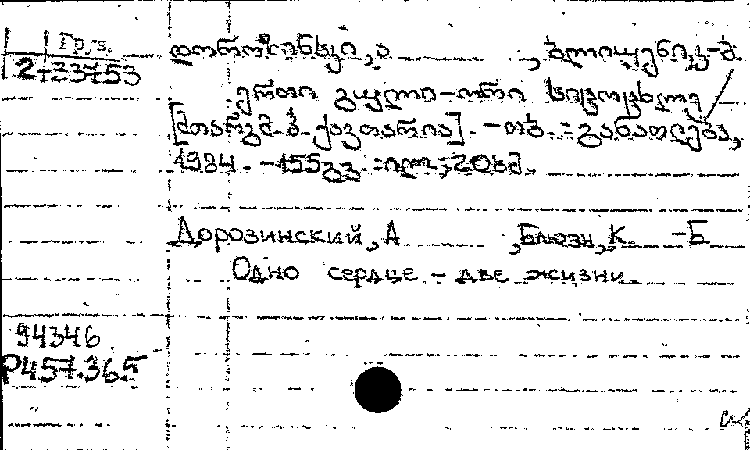 Груз.
2-33453
დოროზინსკი, ა , ბლიუზენი, კ-ბ.
ერთი გული-ორი სიცოცხლე
[მთარგმ. ბ. ქავთარია]. -თბ.: განათლება,
1984. -155გვ. :ილ.; 20სმ.
Дорозинский, А ,Блюэн, К -Б
Одно сердце - две жизни.
94346
Р457.365